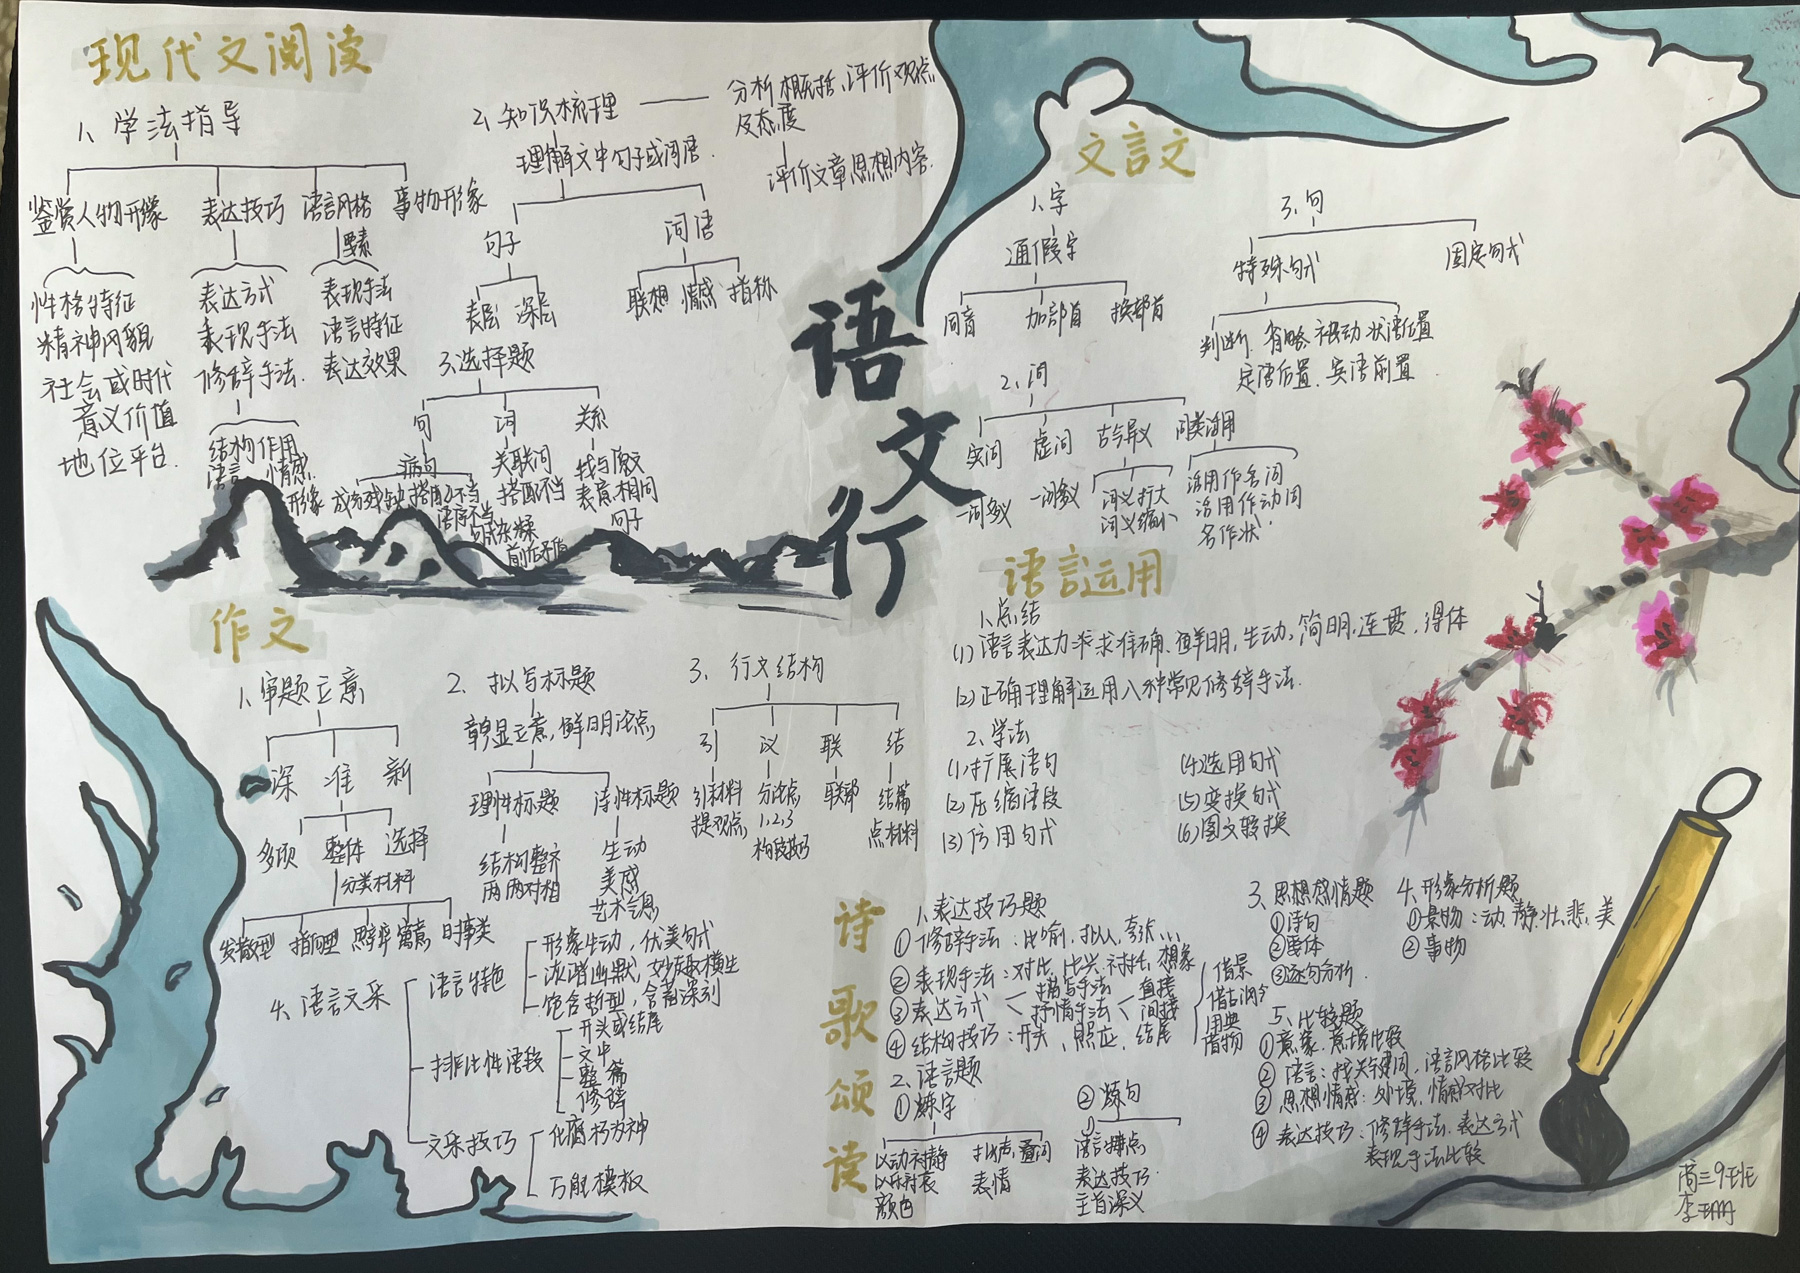 现代文阅读
1、学法指导
鉴赏人物形象 表达技巧 语言风格 事物形象
要素
性格特征
精神风貌
社会或时代
意义价值
地位平台
表达方式
表现手法
修辞手法
结构 作用
语言 情感
形象
表现手法
语言特征
表达效果
2、知识梳理
分析概括、评价观点
及态度
评价文章思想内容
理解文中句子或词语
句子 词语
表层 深层
联想 情感 指称
3、选择题
句 词 关系
病句
成分残缺 搭配不当
语序不当
句式杂糅
前后矛盾
关联词
搭配不当
找与原文
表意相同
句子
语文行
文言文
1、字
通假字
同音 加部首 换部首
2、词
实词 虚词 古今异义 词类活用
一词多义 一词多义
词义扩大
词义缩小
活用作名词
活用作动词
名作状
3、句
特殊句式 固定句式
判断 省略 被动 状语后置
定语后置、宾语前置
语言运用
1、总结
(1)语言表达力求准确、鲜明,生动,简明,连贯,得体
(2)正确理解运用八种常见修辞手法.
2、学法
(1)扩展语句
(2)压缩语段
(3)仿用句式
(4)选用句式
(5)变换句式
(6)图文转换
作文
1、审题立意
深 准 新
多项 整体 选择
分类材料
发散型 指向型 思辨型 寓意 时事类
2、拟写标题
彰显立意,鲜明论点
理性标题 诗性标题
结构整齐
两两对称
生动
美感
艺术气息
3、行文结构
引 议 联 结
引材料
提观点
分论点
1,2,3
构段技巧
联部
结篇
点材料
4、语言文采
语言特色
形象生动,优美句式
诙谐幽默,妙趣横生
包含哲理,含蓄深刻
排比性语段
开头或结尾
文中
整篇
修辞
文采技巧
化腐朽为神
万能模板
诗歌颂读
1、表达技巧题
①修辞手法:比喻,拟人,夸张...
②表现手法:对比,比兴,衬托,想象
③表达方式 描写手法
抒情手法 直接
间接
借景
借古讽今
用典
借物
④结构技巧:开头、照应、结尾
2、语言题
①炼字 ②炼句
以动衬静
以乐衬哀
颜色
拟声,叠词
表情
语言特点
表达技巧
主旨深义
3、思想感情题
①诗句
②整体
③逐句分析
4、形象分析题
①景物:动,静,壮,悲,美
②事物
5、比较题
①意象、意境比较
②语言:找关键词,语言风格比较
③思想情感:处境,情感对比
④表达技巧:修辞手法、表达方式
表现手法比较
高三9班